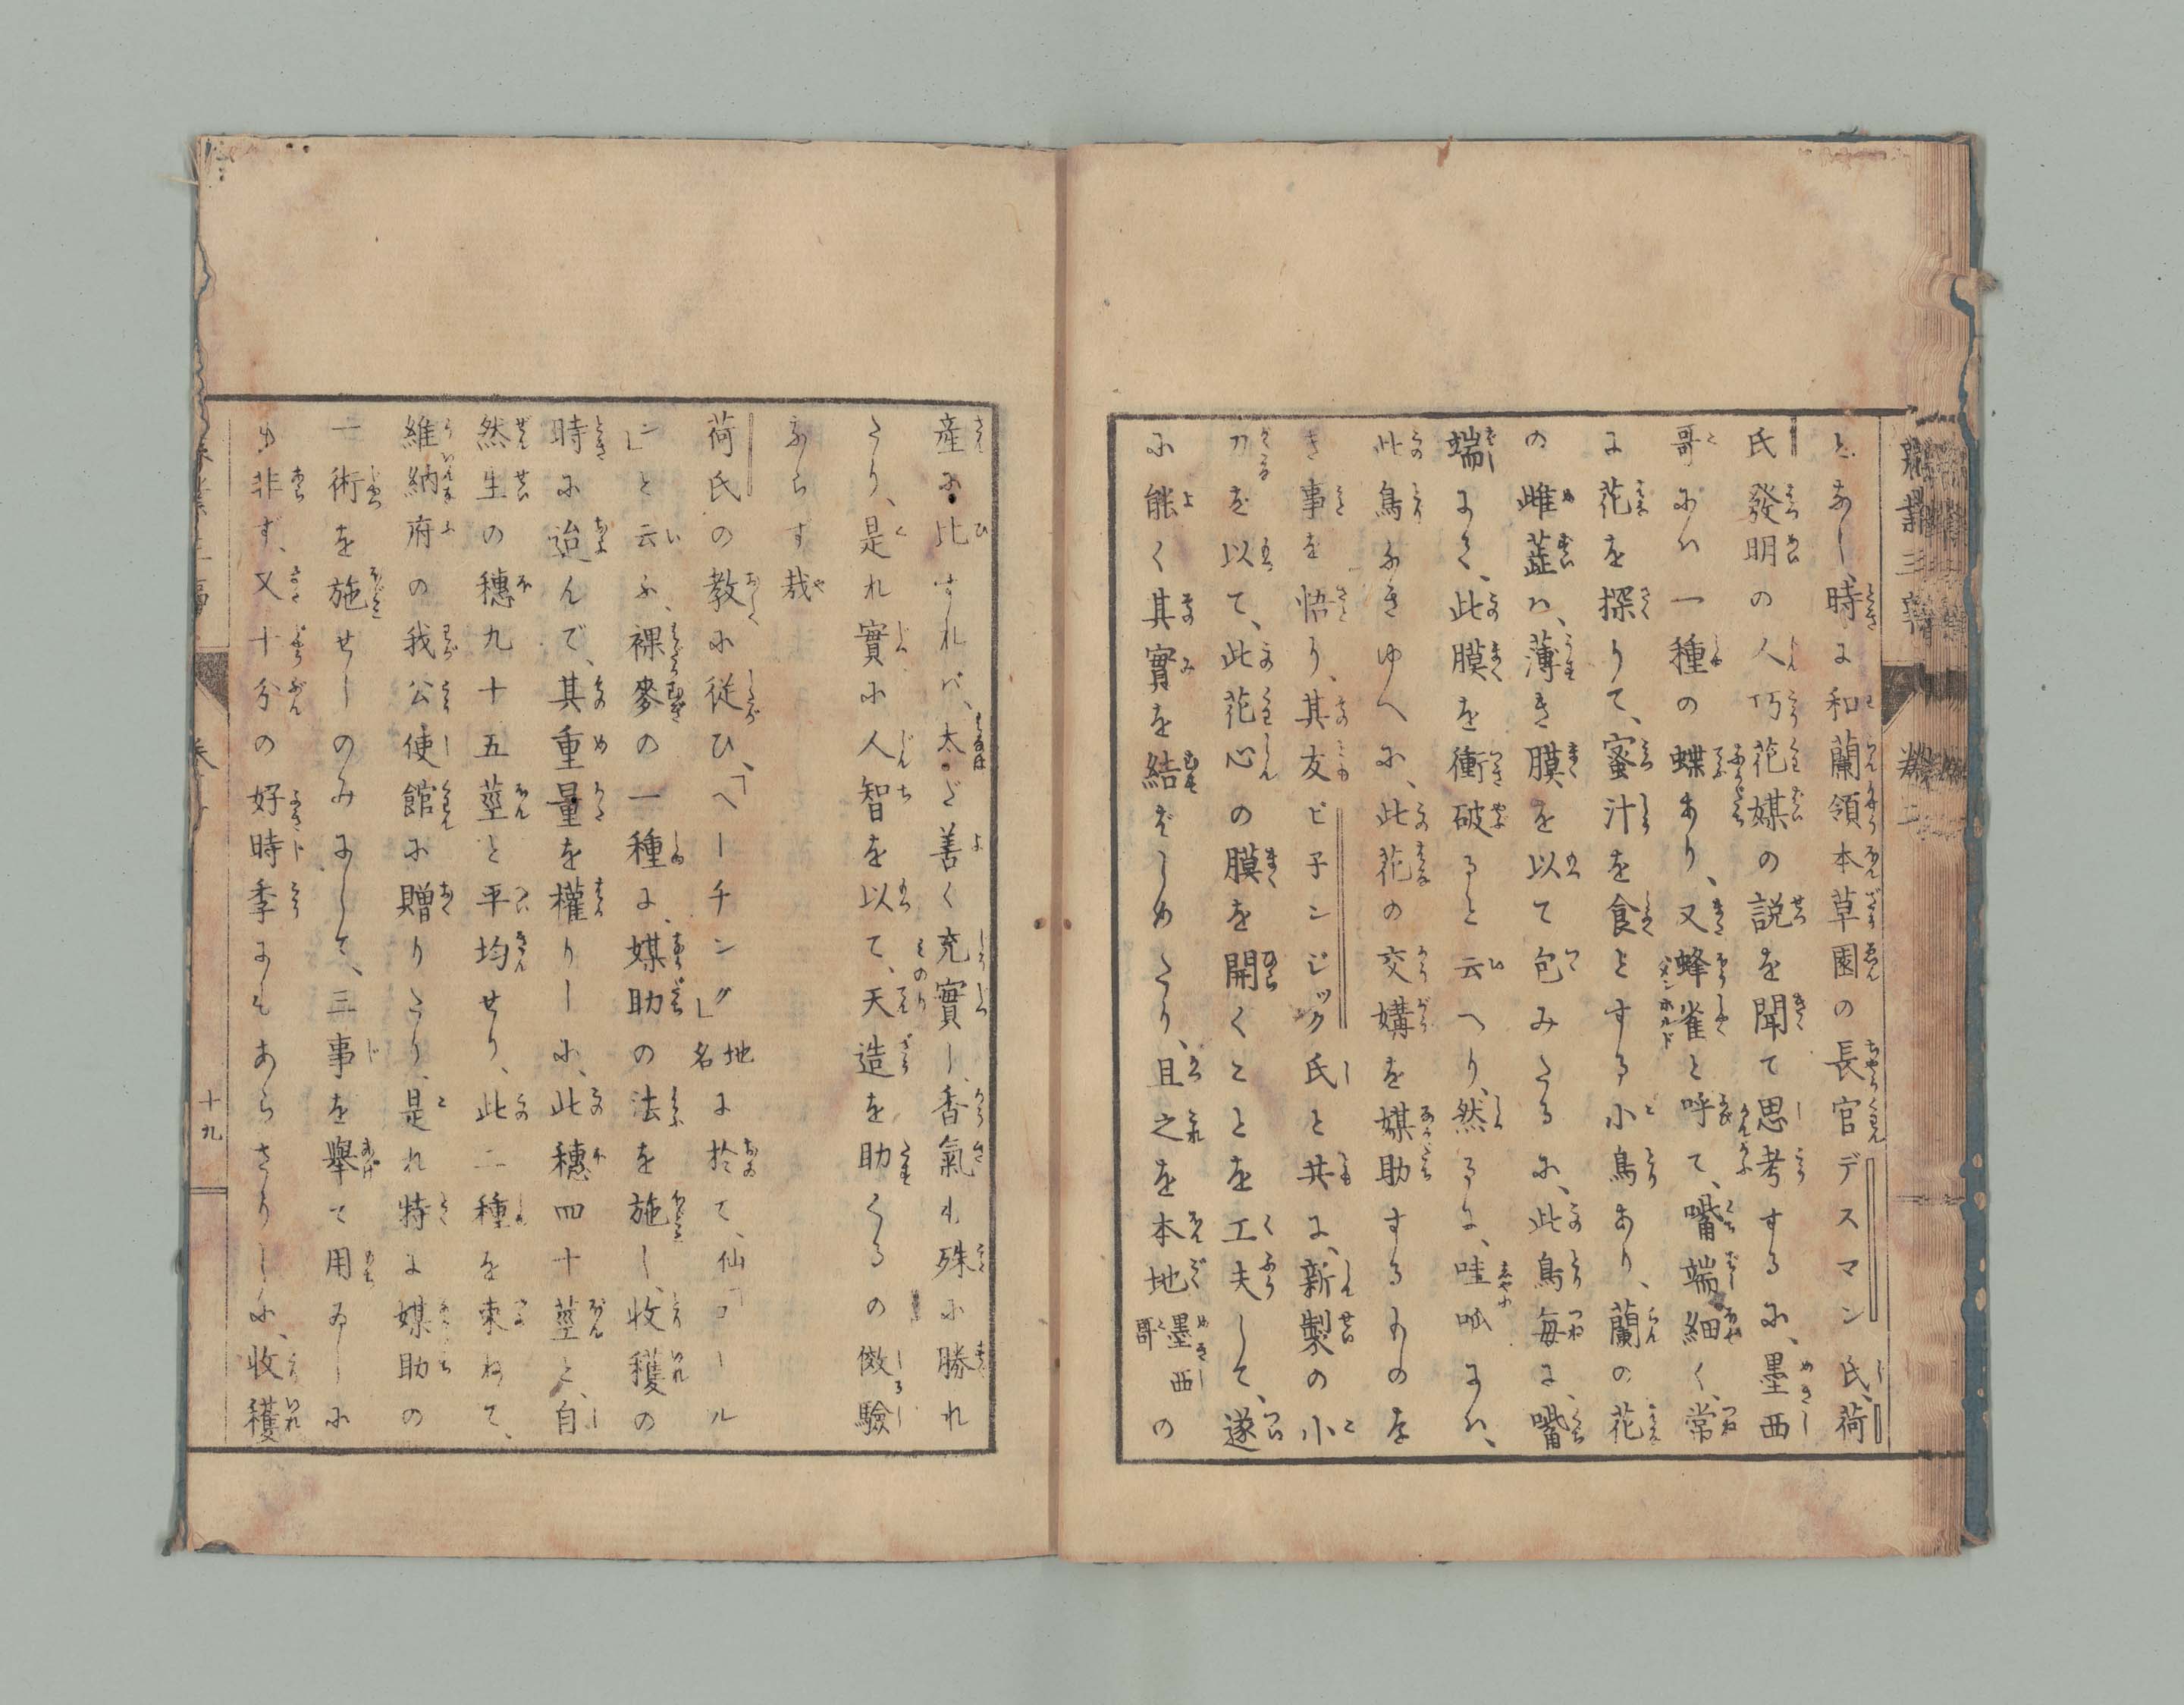 農業三事
となし、時に和蘭領本草園の長官デスマン氏、荷
氏發明の人巧花媒の説を聞て思考するに、墨西
哥にハ一種の蝶あり、又蜂雀と呼て、嘴端細く、常
に花を探りて、蜜汁を食とする小鳥あり、蘭の花
の雌蕋ハ、薄き膜を以て包みたるに、此鳥毎に、嘴
端にて、此膜を衝破ると云へり、然るに、哇呱にハ、
此鳥なきゆへに、此花の交媾を媒助するものを
き事を悟り、其友ビ子ンジック氏と共に、新製の小
刀を以て、此花心の膜を開くことを工夫して、遂
に能く其實を結ばしめたり、且之を本地墨西哥の
産に比すれバ、太だ善く充實し、香氣も殊に勝れ
たり、是れ實に人智を以て、天造を助くるの徴驗
ならす哉
荷氏の教に從ひ、「ヘーチング」地名に於て、仙「コール
ン」と云ふ、裸麥の一種に、媒助の法を施し、收穫の
時に迨んで、其重量を權りしに、此穗四十莖と、自
然生の穗九十五莖と平均せり、此二種を束ねて、
維納府の我公使館に贈りたり、是れ特に媒助の
一術を施せしのみにして、三事を擧て用ゐしに
も非ず、又十分の好時季にもあらさりしに、收穫
十九